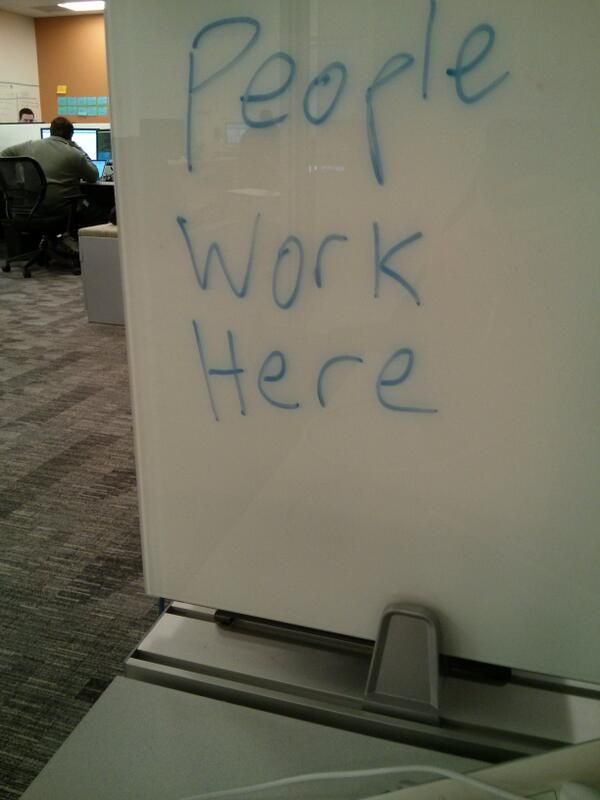 People
Work
Here